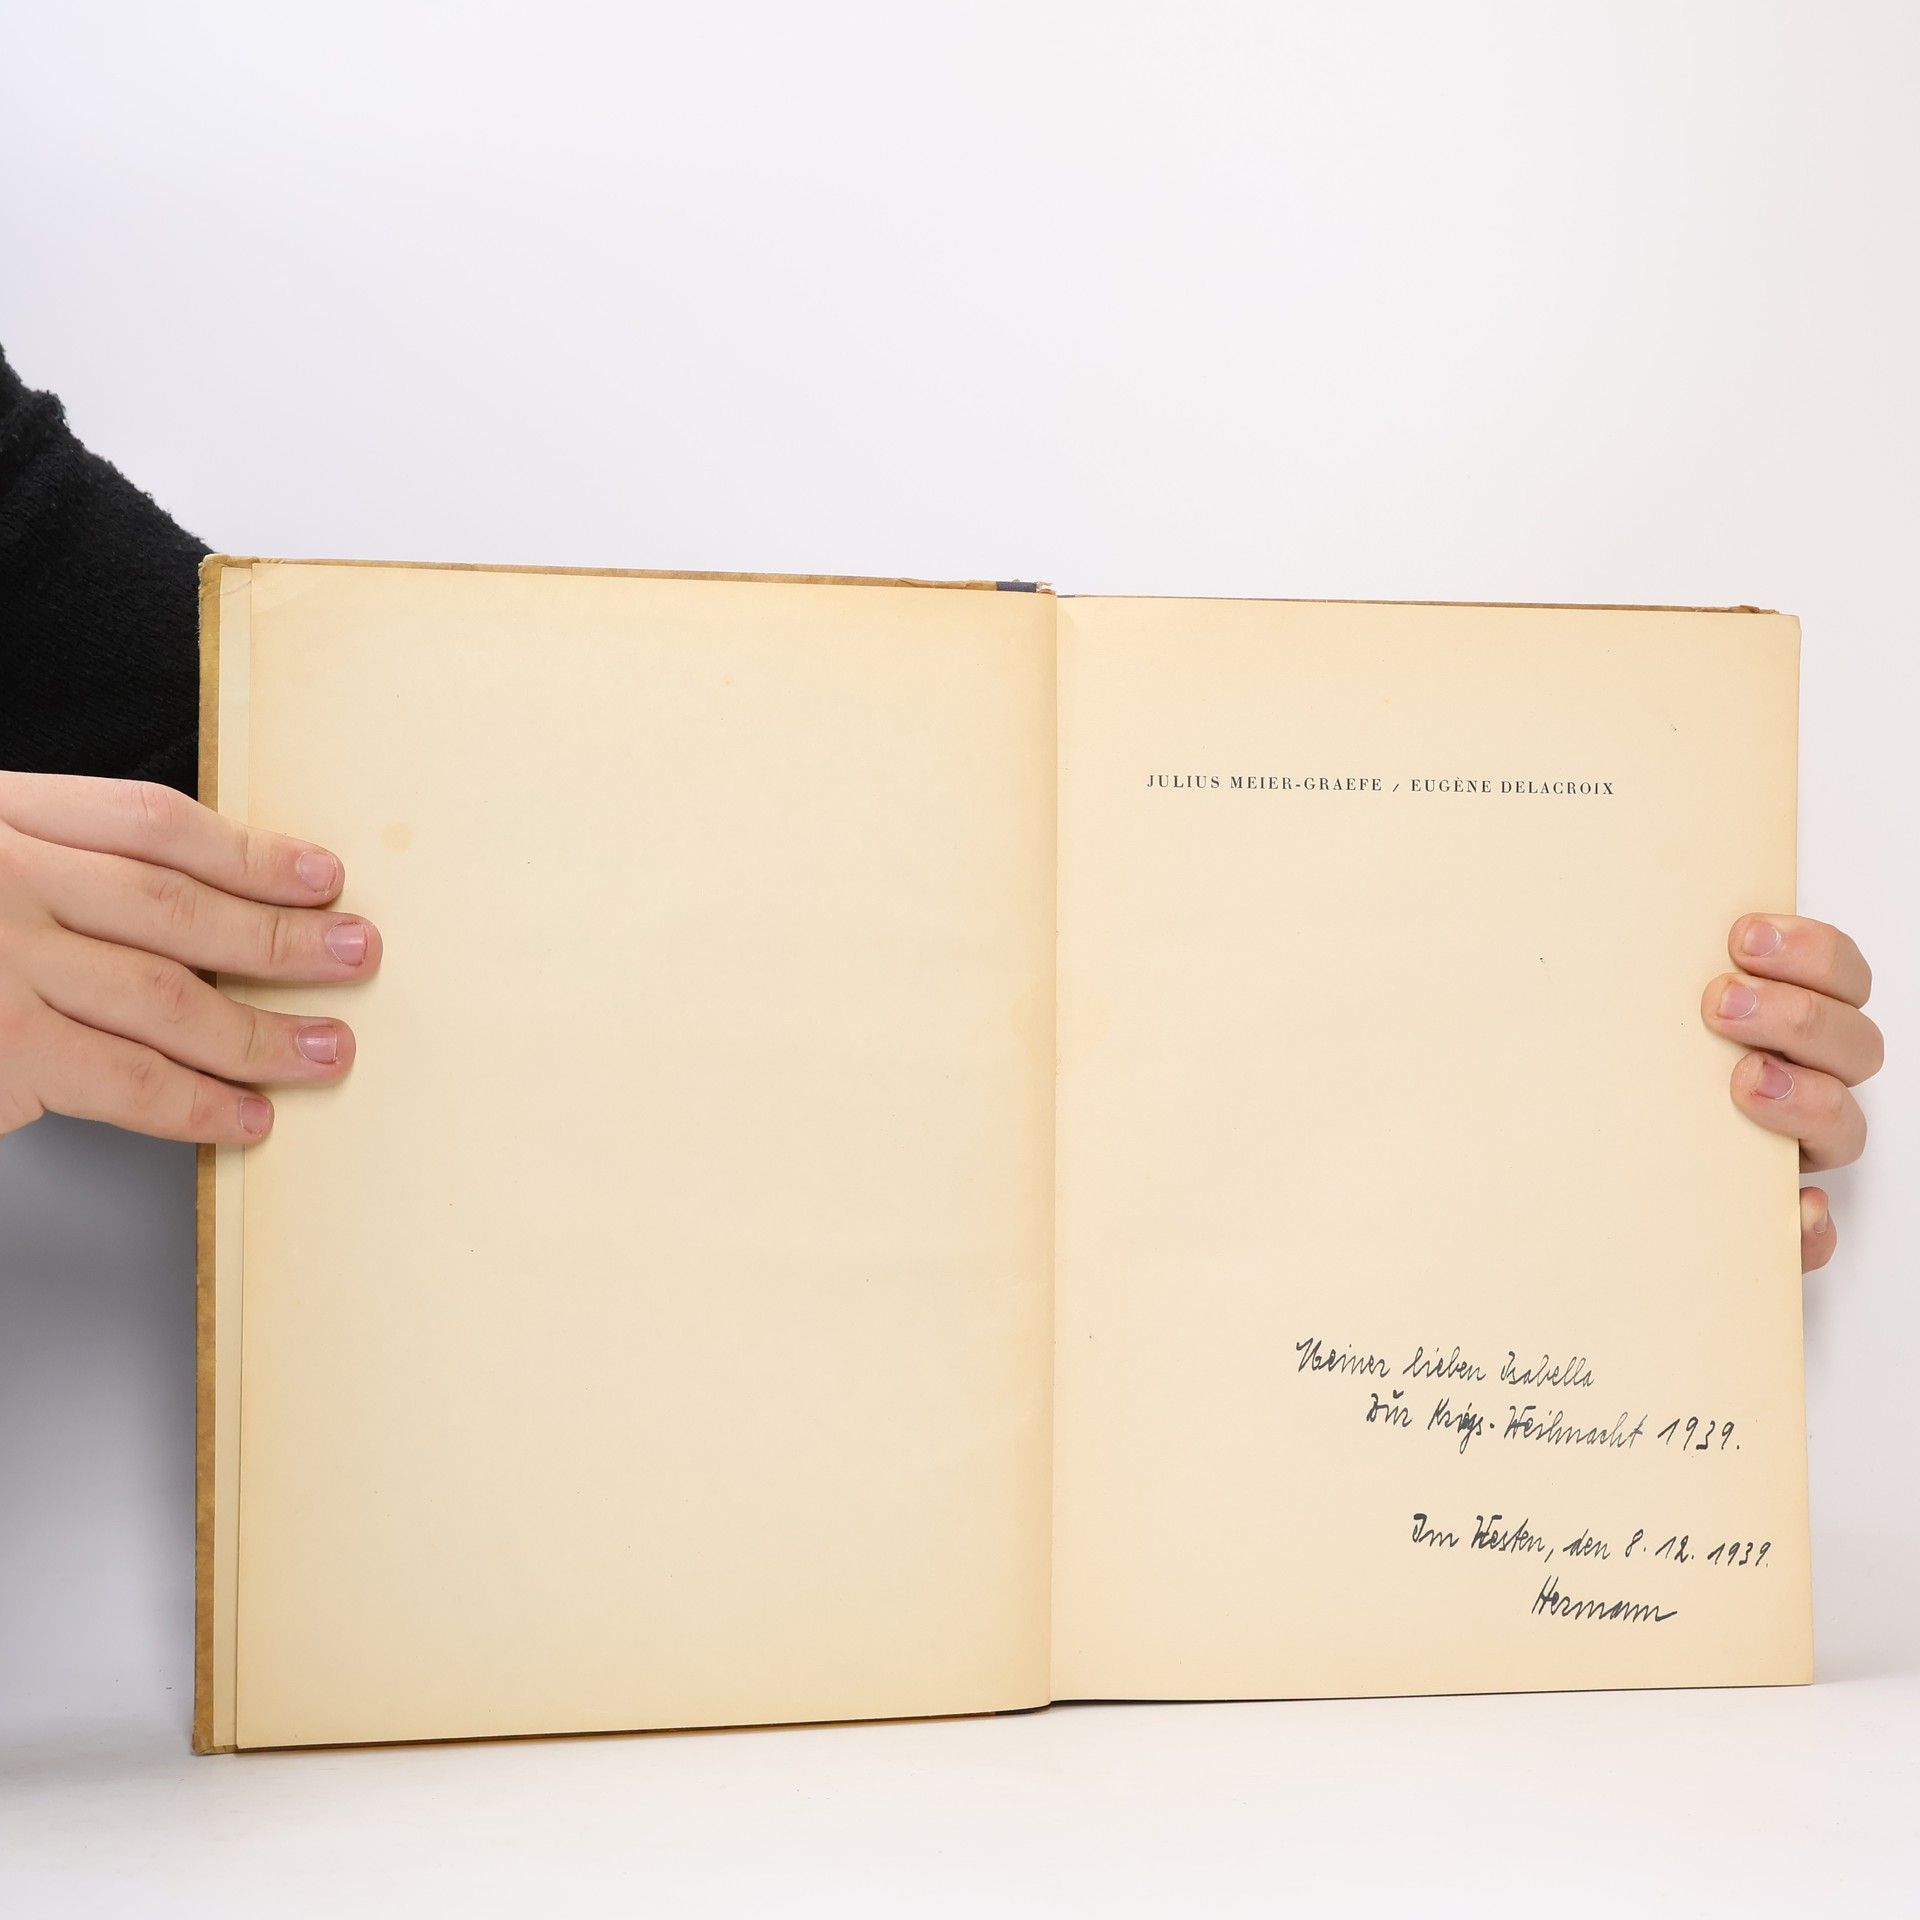 JULIUS MEIER-GRAEFE / EUGÈNE DELACROIX
Meiner lieben Isabella
Zŭr Kriegs-Weihnacht 1939.
Im Westen, den 8. 12. 1939.
Hermann